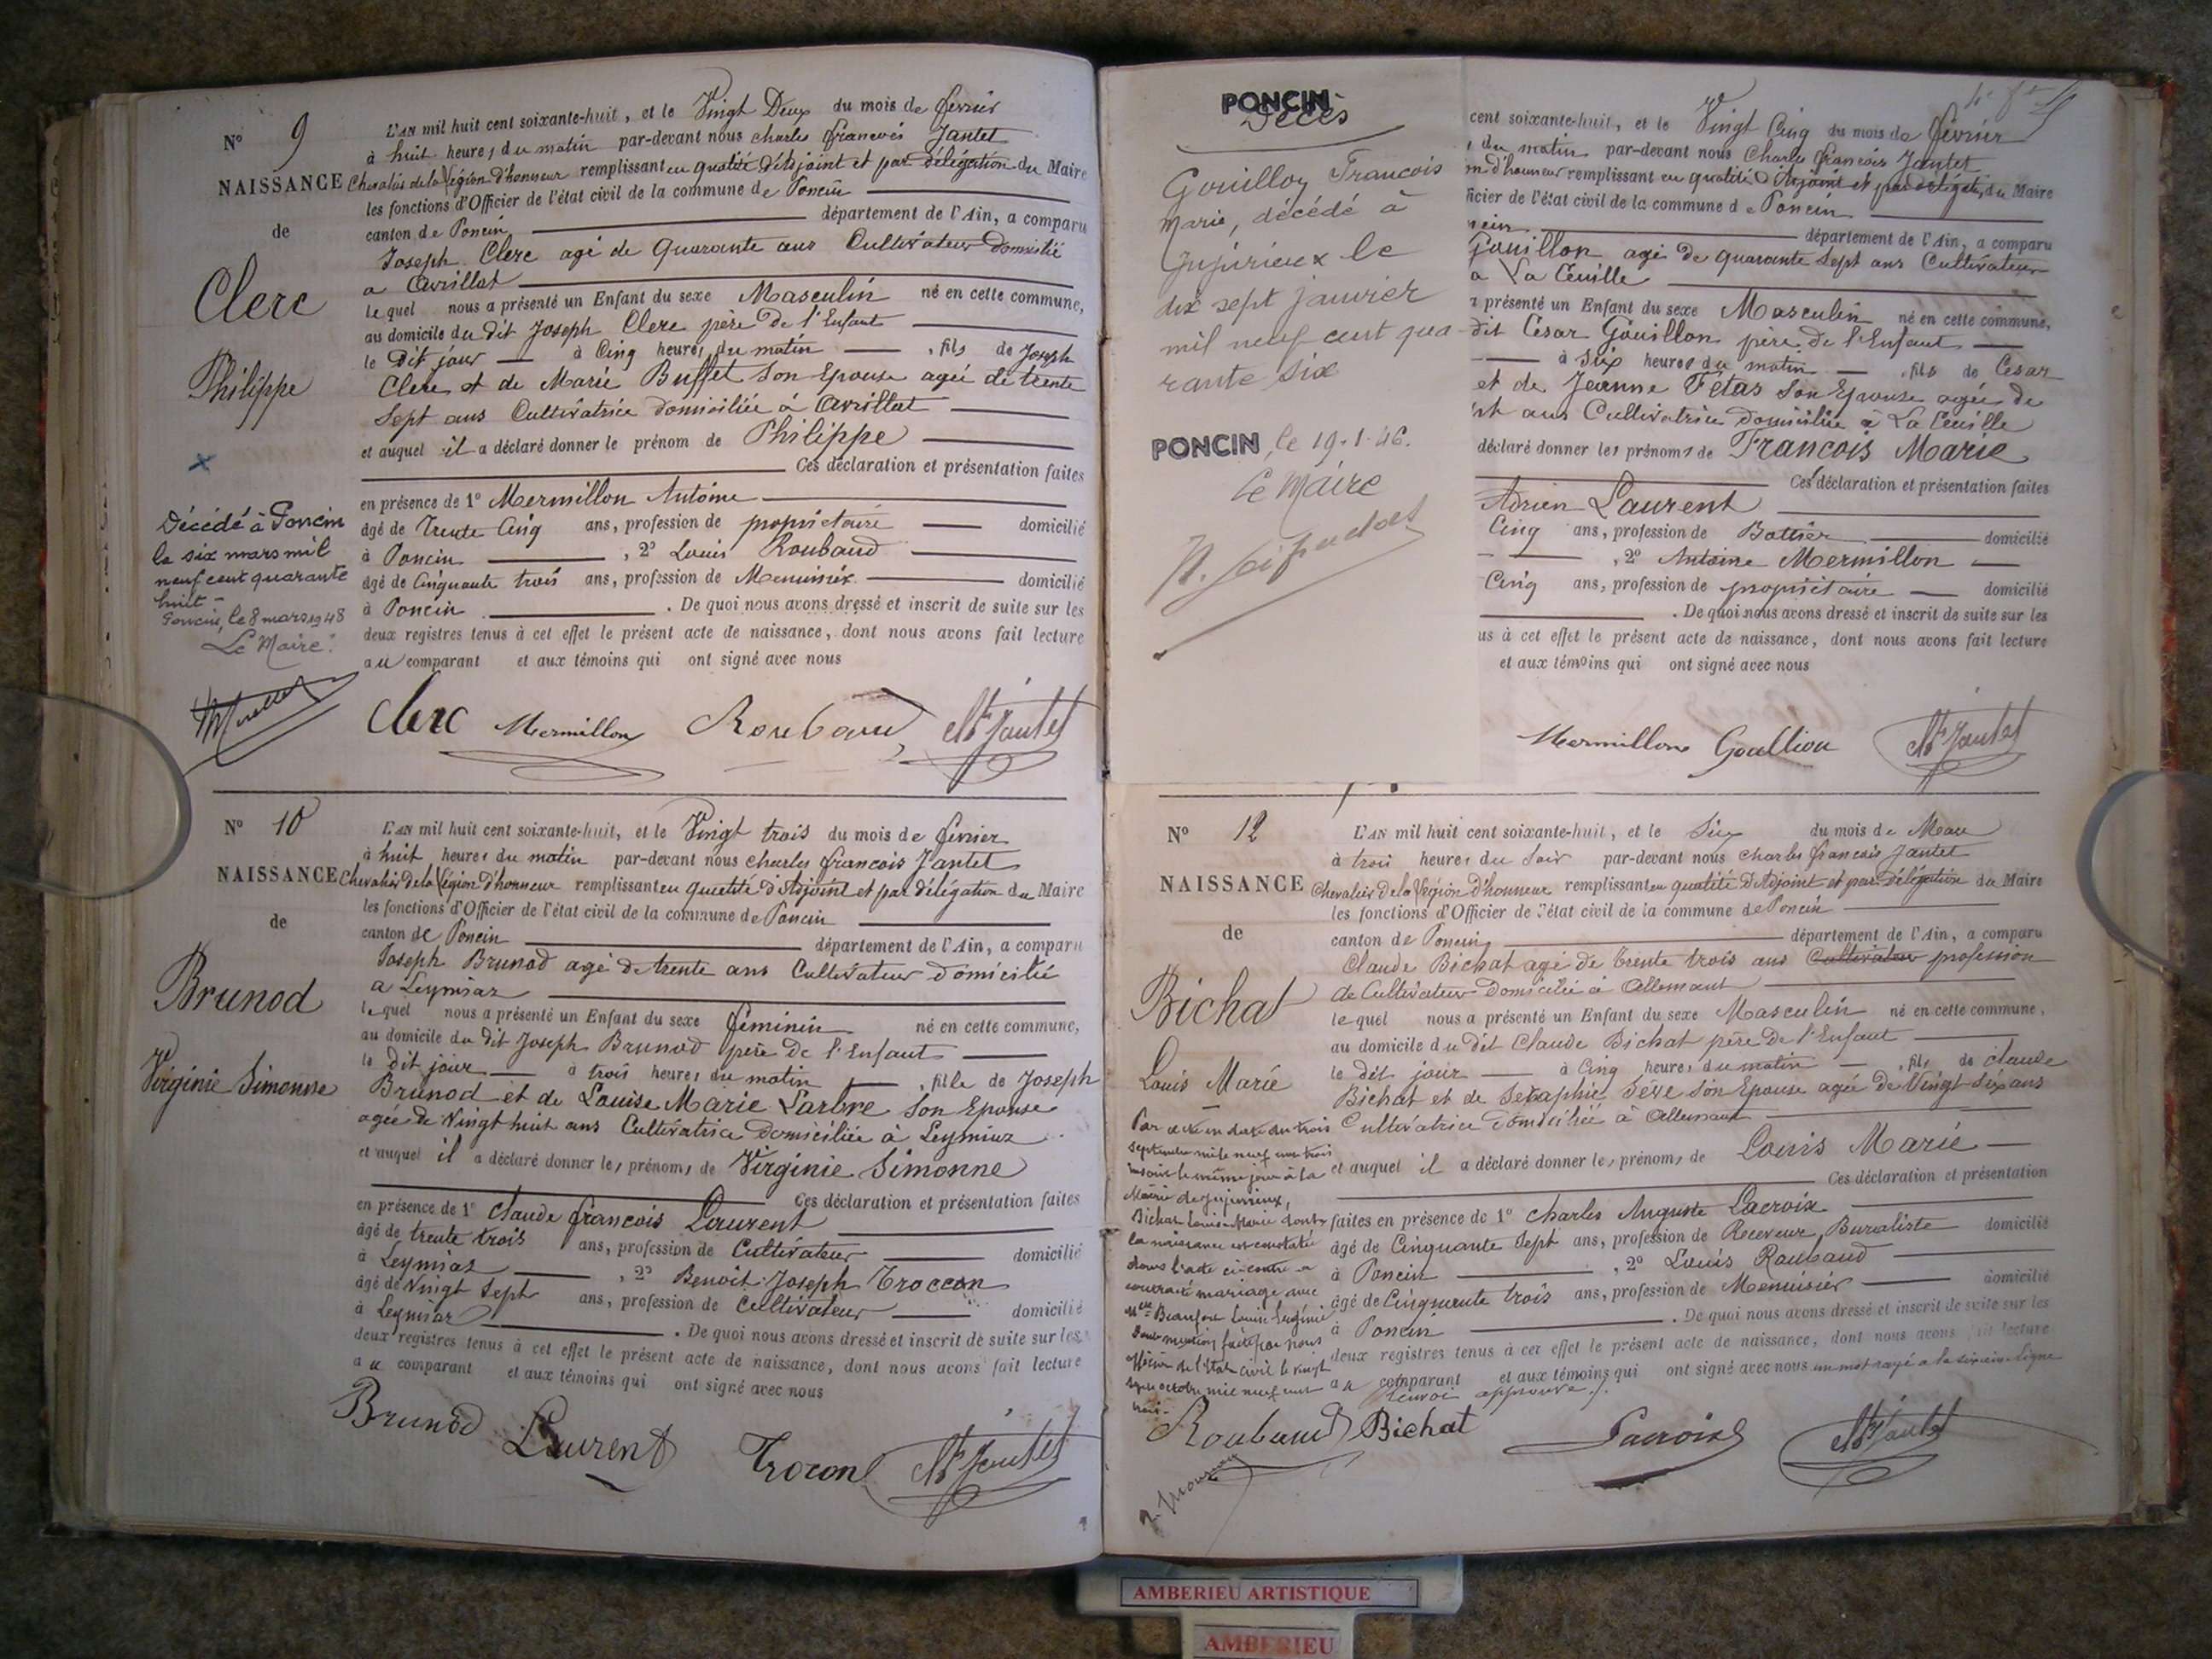 N° 9
NAISSANCE
de
Clerc
Philippe
Décédé à Poncin
le six mars mil
neuf cent quarante
huit -
Poncin, le 8 mars 1948
Le Maire :
L'AN mil huit cent soixante-huit, et le Vingt Deux du mois de février
à huit heures du matin par-devant nous Charles François Jantet
Chevalier de la Légion d'honneur remplissant en qualité d'Adjoint et par délégation du Maire
les fonctions d'Officier de l'état civil de la commune de Poncin
canton de Poncin département de l'Ain, a comparu
Joseph Clerc agé de quarante ans Cultivateur domicilié
a Avrillat
lequel nous a présenté un Enfant du sexe Masculin né en cette commune,
au domicile du dit Joseph Clerc père de l'Enfant
le dit jour à Cinq heures du matin , fils de Joseph
Clerc et de Marie Buffet son Epouse agée de trente
Sept ans Cultivatrice domiciliée à Avrillat
et auquel il a déclaré donner le prénom de Philippe
Ces déclaration et présentation faites
en présence de 1° Mermillon Antoine
âgé de Trente Cinq ans, profession de propriétaire domicilié
à Poncin , 2° Louis Roubaud
âgé de Cinquante trois ans, profession de Menuisier domicilié
à Poncin . De quoi nous avons dressé et inscrit de suite sur les
deux registres tenus à cet effet le présent acte de naissance, dont nous avons fait lecture
au comparant et aux témoins qui ont signé avec nous
Clerc Mermillon Roubaud Jantet
N° 10
NAISSANCE
de
Brunod
Virginie Simonne
L'AN mil huit cent soixante-huit, et le Vingt trois du mois de février
à huit heures du matin par-devant nous Charles François Jantet
Chevalier de la Légion d'honneur remplissant en quetité d'Adjoint et par délégation du Maire
les fonctions d'Officier de l'état civil de la commune de Poncin
canton de Poncin département de l'Ain, a comparu
Joseph Brunod agé de trente ans Cultivateur domicilié
a Leymiaz
lequel nous a présenté un Enfant du sexe féminin né en cette commune,
au domicile du dit Joseph Brunod père de l'Enfant
le dit jour à trois heures du matin , fille de Joseph
Brunod et de Louise Marie Larbre son Epouse
agée de Vingt huit ans Cultivatrice domiciliée à Leymiaz
et auquel il a déclaré donner les prénoms de Virginie Simonne
Ces déclaration et présentation faites
en présence de 1° Claude françois Laurent
âgé de trente trois ans, profession de Cultivateur domicilié
à Leymiaz , 2° Benoit Joseph Troccon
âgé de Vingt Sept ans, profession de Cultivateur domicilié
à Leymiaz . De quoi nous avons dressé et inscrit de suite sur les
deux registres tenus à cet effet le présent acte de naissance, dont nous avons fait lecture
au comparant et aux témoins qui ont signé avec nous
Brunod Laurent Trocon Jantet
PONCIN
Décès
Gouilloy François
Marie, décédé à
Jujurieux le
dix sept janvier
mil neuf cent qua-
rante six
PONCIN, le 19-1-46.
Le Maire
cent soixante-huit, et le Vingt Cinq du mois de février
du matin par-devant nous Charles françois Jantet
n d'honneur remplissant en qualité d'Adjoint et par délégation du Maire
ficier de l'état civil de la commune de Poncin
ncin département de l'Ain, a comparu
Gouillon agé de quarante Sept ans Cultivateur
a La Ceuille
a présenté un Enfant du sexe Masculin né en cette commune,
dit César Gouillon père de l'Enfant
à Six heures du matin , fils de César
et de Jeanne Tétas son Epouse agée de
ans Cultivatrice domiciliée à La Ceuille
déclaré donner les prénoms de François Marie
Ces déclaration et présentation faites
Adrien Laurent
Cinq ans, profession de Bottier domicilié
, 2° Antoine Mermillon
Cinq ans, profession de propriétaire domicilié
. De quoi nous avons dressé et inscrit de suite sur les
us à cet effet le présent acte de naissance, dont nous avons fait lecture
et aux témoins qui ont signé avec nous
Mermillon Goullion Jantet
N° 12
NAISSANCE
de
Bichat
Louis Marie
Par acte en date du trois
septembre mil neuf cent trois
inscrit le même jour à la
Mairie de Jujurieux,
Bichat Louis Marie dont
la naissance est constatée
dans l'acte ci-contre a
contracté mariage avec
Louise
Dont mention faite par nous
officier de l'Etat civil le vingt
sept octobre mil neuf cent
trois.-
L'AN mil huit cent soixante-huit, et le Six du mois de Mars
à trois heures du Soir par-devant nous Charles françois Jantet
Chevalier de la Légion d'honneur remplissant en qualité d'Adjoint et par délégation du Maire
les fonctions d'Officier de l'état civil de la commune de Poncin
canton de Poncin, département de l'Ain, a comparu
Claude Bichat agé de trente trois ans Cultivateur profession
de Cultivateur domicilié à Allemant
lequel nous a présenté un Enfant du sexe Masculin né en cette commune,
au domicile du dit Claude Bichat père de l'Enfant
le dit jour à Cinq heures du matin , fils de Claude
Bichat et de Séraphie Sève son Epouse agée de Vingt Six ans
Cultivatrice domiciliée à Allemant
et auquel il a déclaré donner les prénoms de Louis Marie
Ces déclaration et présentation
faites en présence de 1° Charles Auguste Lacroix
âgé de Cinquante Sept ans, profession de Receveur Buraliste domicilié
à Poncin , 2° Louis Roubaud
âgé de Cinquente trois ans, profession de Menuisier domicilié
à Poncin . De quoi nous avons dressé et inscrit de suite sur les
deux registres tenus à cet effet le présent acte de naissance, dont nous avons fait lecture
au comparant et aux témoins qui ont signé avec nous un mot rayé a la sixième ligne
Renvoi approuvé
Roubaud Bichat Lacroix Jantet
AMBERIEU ARTISTIQUE
AMBERIEU